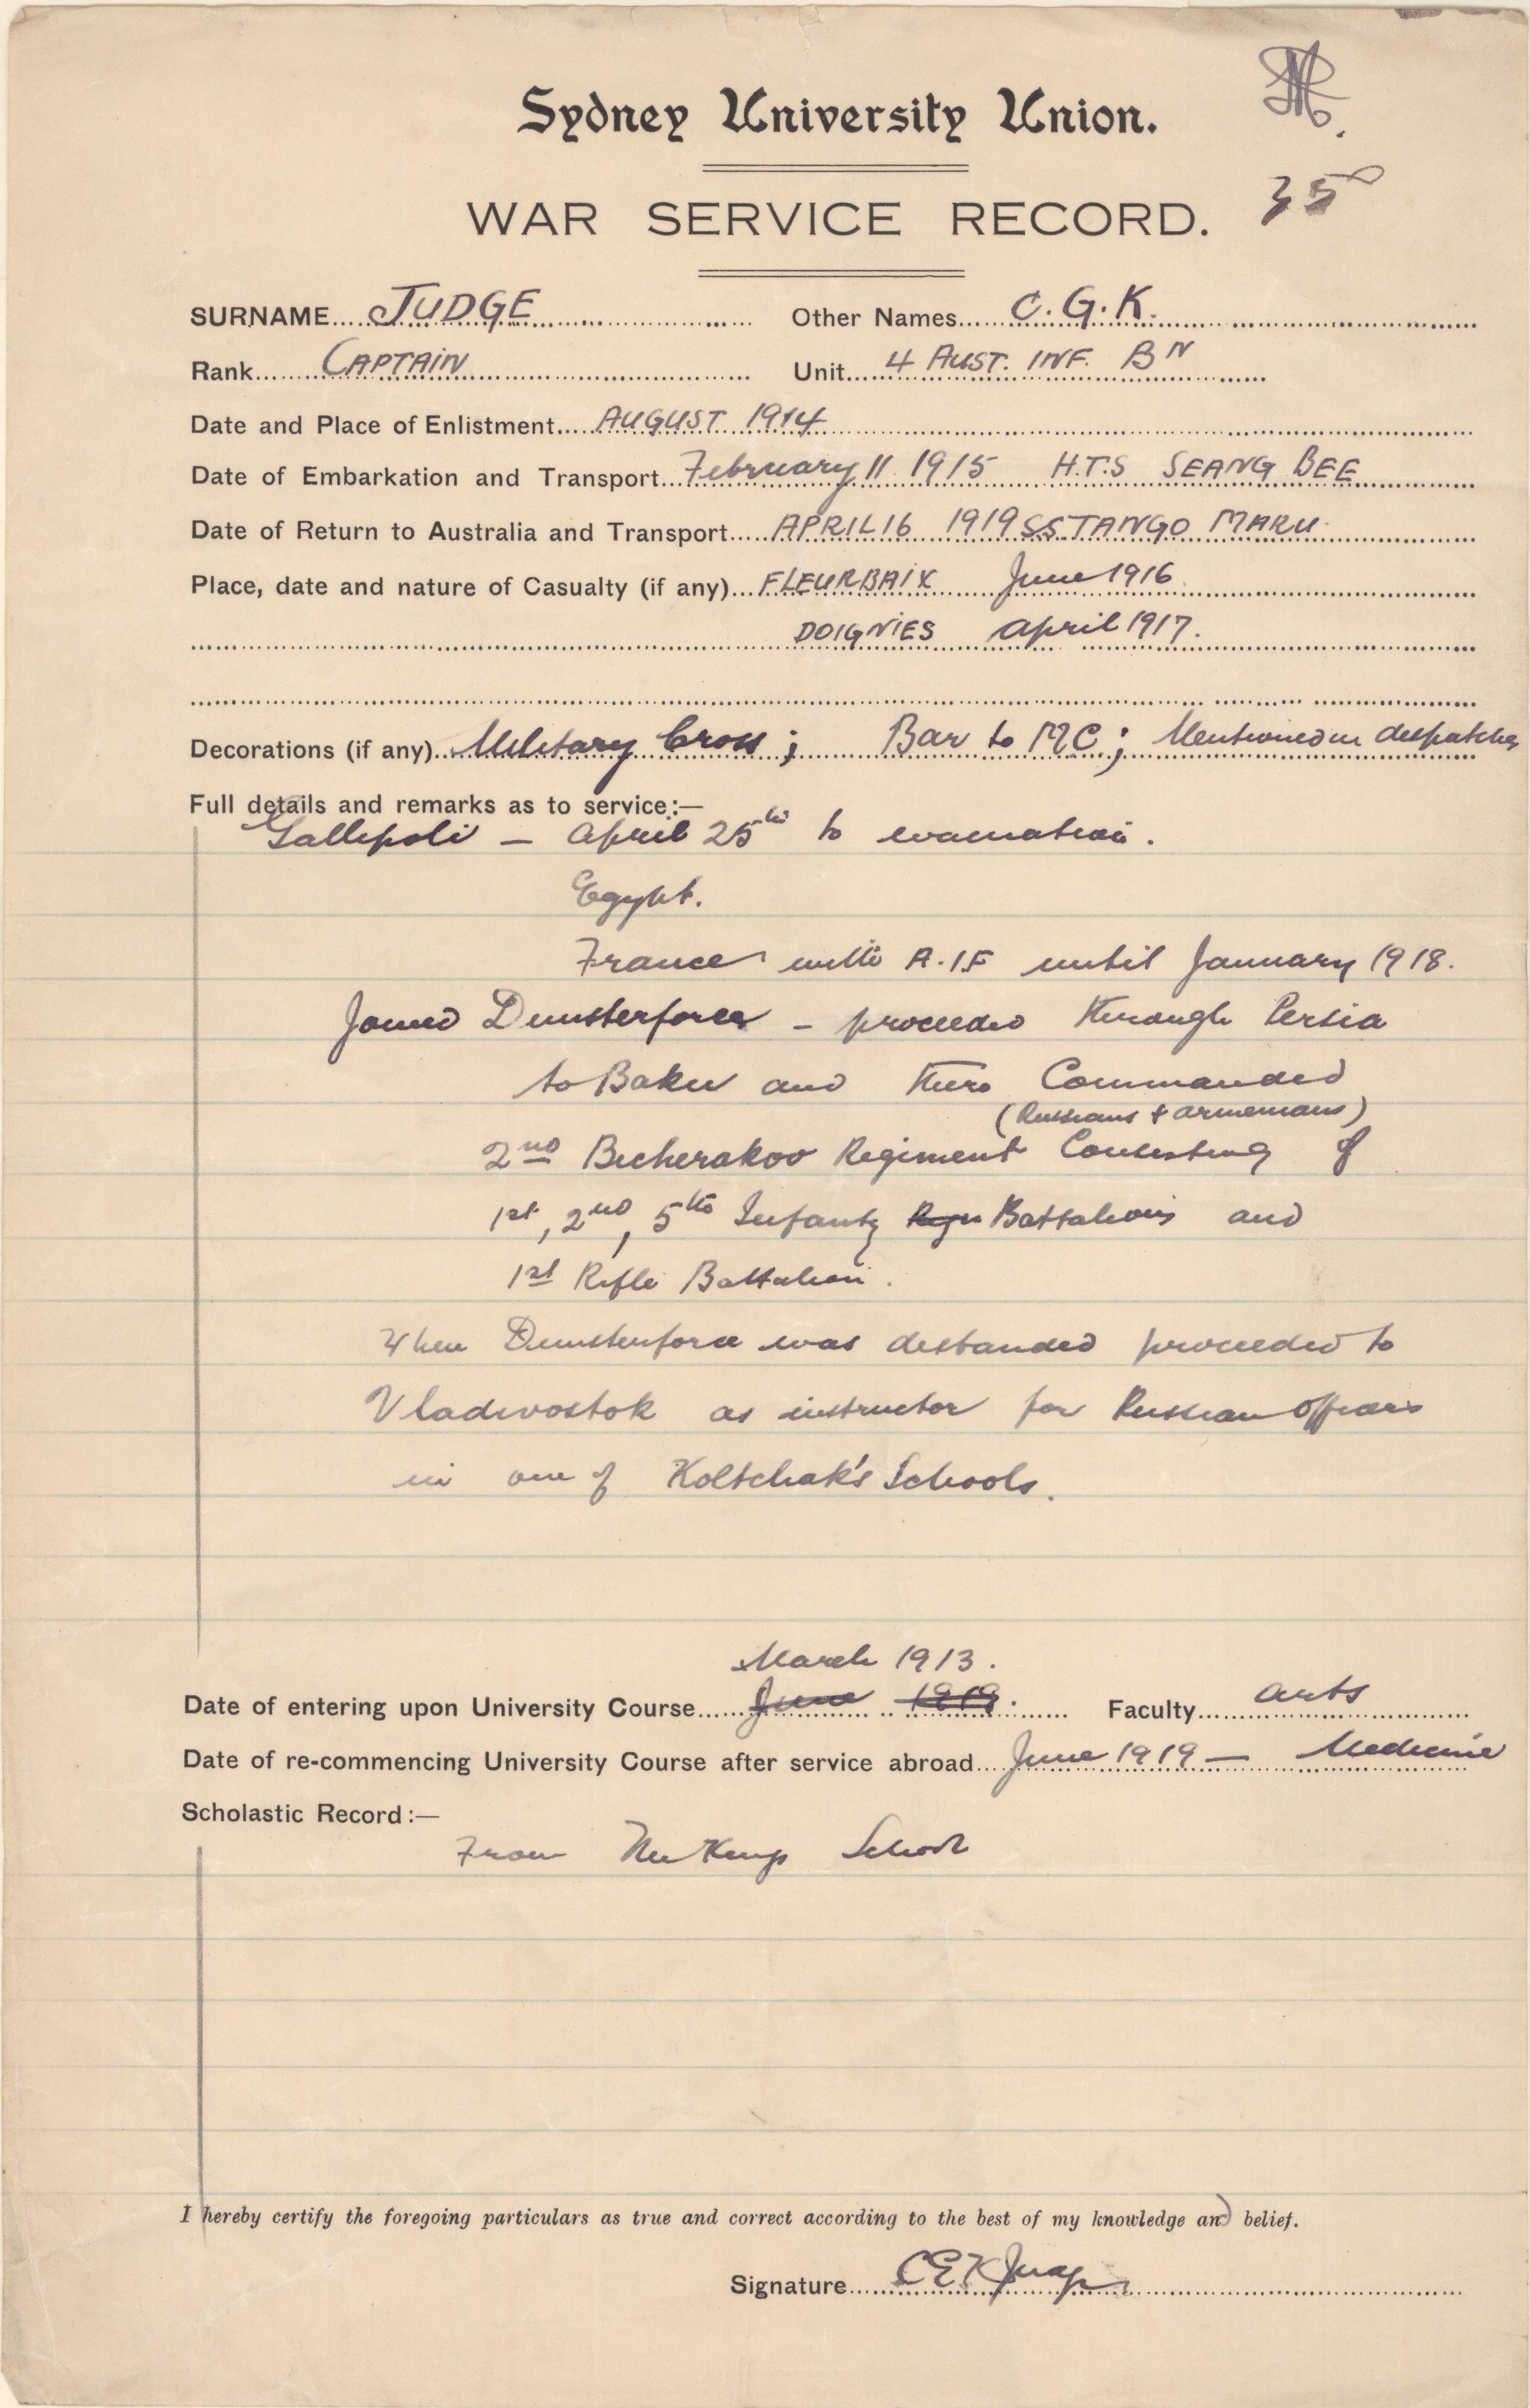 Sydney University Union.
35
WAR SERVICE RECORD.
SURNAME.... JUDGE Other Names..... C.G.K.
Rank....... CAPTAIN Unit.... 4 AUST. INF. BN
Date and Place of Enlistment.... AUGUST 1914
Date of Embarkation and Transport... February 11 1915 H.T.S SEANG BEE
Date of Return to Australia and Transport.... APRIL 16 1919 SS TANGO MARU.
Place, date and nature of Casualty (if any)... FLEURBAIX June 1916
DOIGNIES April 1917.
Decorations (if any)... Military Cross; Bar to MC; Mentioned in despatches
Full details and remarks as to service:—
Gallipoli – April 25th to evacuation.
Egypt.
France with A.I.F until January 1918.
Joined Dunsterforce – proceeded through Persia
to Baku and there Commanded
(Russians & Armenians)
2nd Bicherakov Regiment Consisting of
1st, 2nd, 5th Infantry Battalions and
1st Rifle Battalion.
When Dunsterforce was disbanded proceeded to
Vladivostok as instructor for Russian Officers
in one of Koltchak's Schools.
March 1913.
Date of entering upon University Course...... June 1919. Faculty...... Arts
Date of re-commencing University Course after service abroad.... June 1919 — Medicine
Scholastic Record:—
From The Kings School
I hereby certify the foregoing particulars as true and correct according to the best of my knowledge and belief.
Signature..... CGK Judge